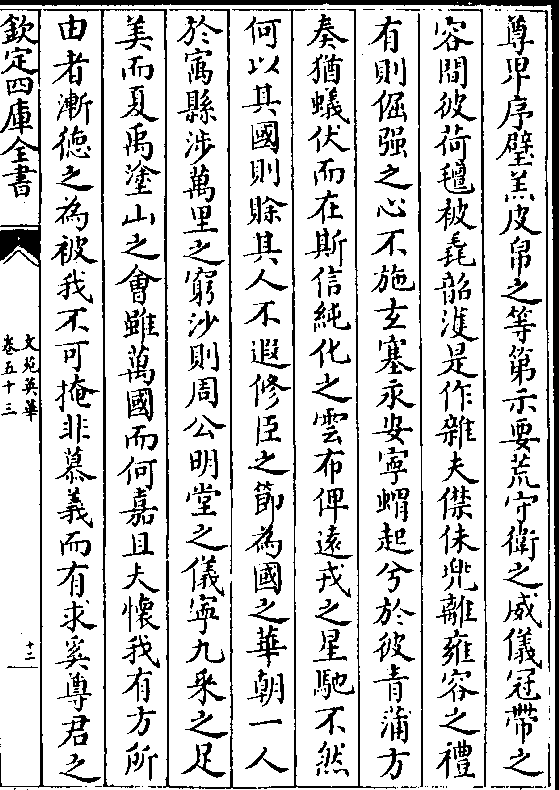 尊卑序璧羔皮帛之等第示要荒守衛之威儀冠帶之
容間彼荷氊被毳韶濩是作雜夫傑侏兜離雍容之禮
有則倔强之心不施玄塞永安寧蝟起兮於彼青蒲方
奏猶蟻伏而在斯信純化之雲布俾遠戎之星馳不然
何以其國則賖其人不遐修臣之節為國之華朝一人
於寓縣涉萬里之窮沙則周公明堂之儀寧九采之足
美而夏禹塗山之會雖萬國而何嘉且夫懷我有方所
由者漸德之為被我不可掩非慕義而有求奚尊君之
欽定四庫全書
文苑英華
卷五十三
十二